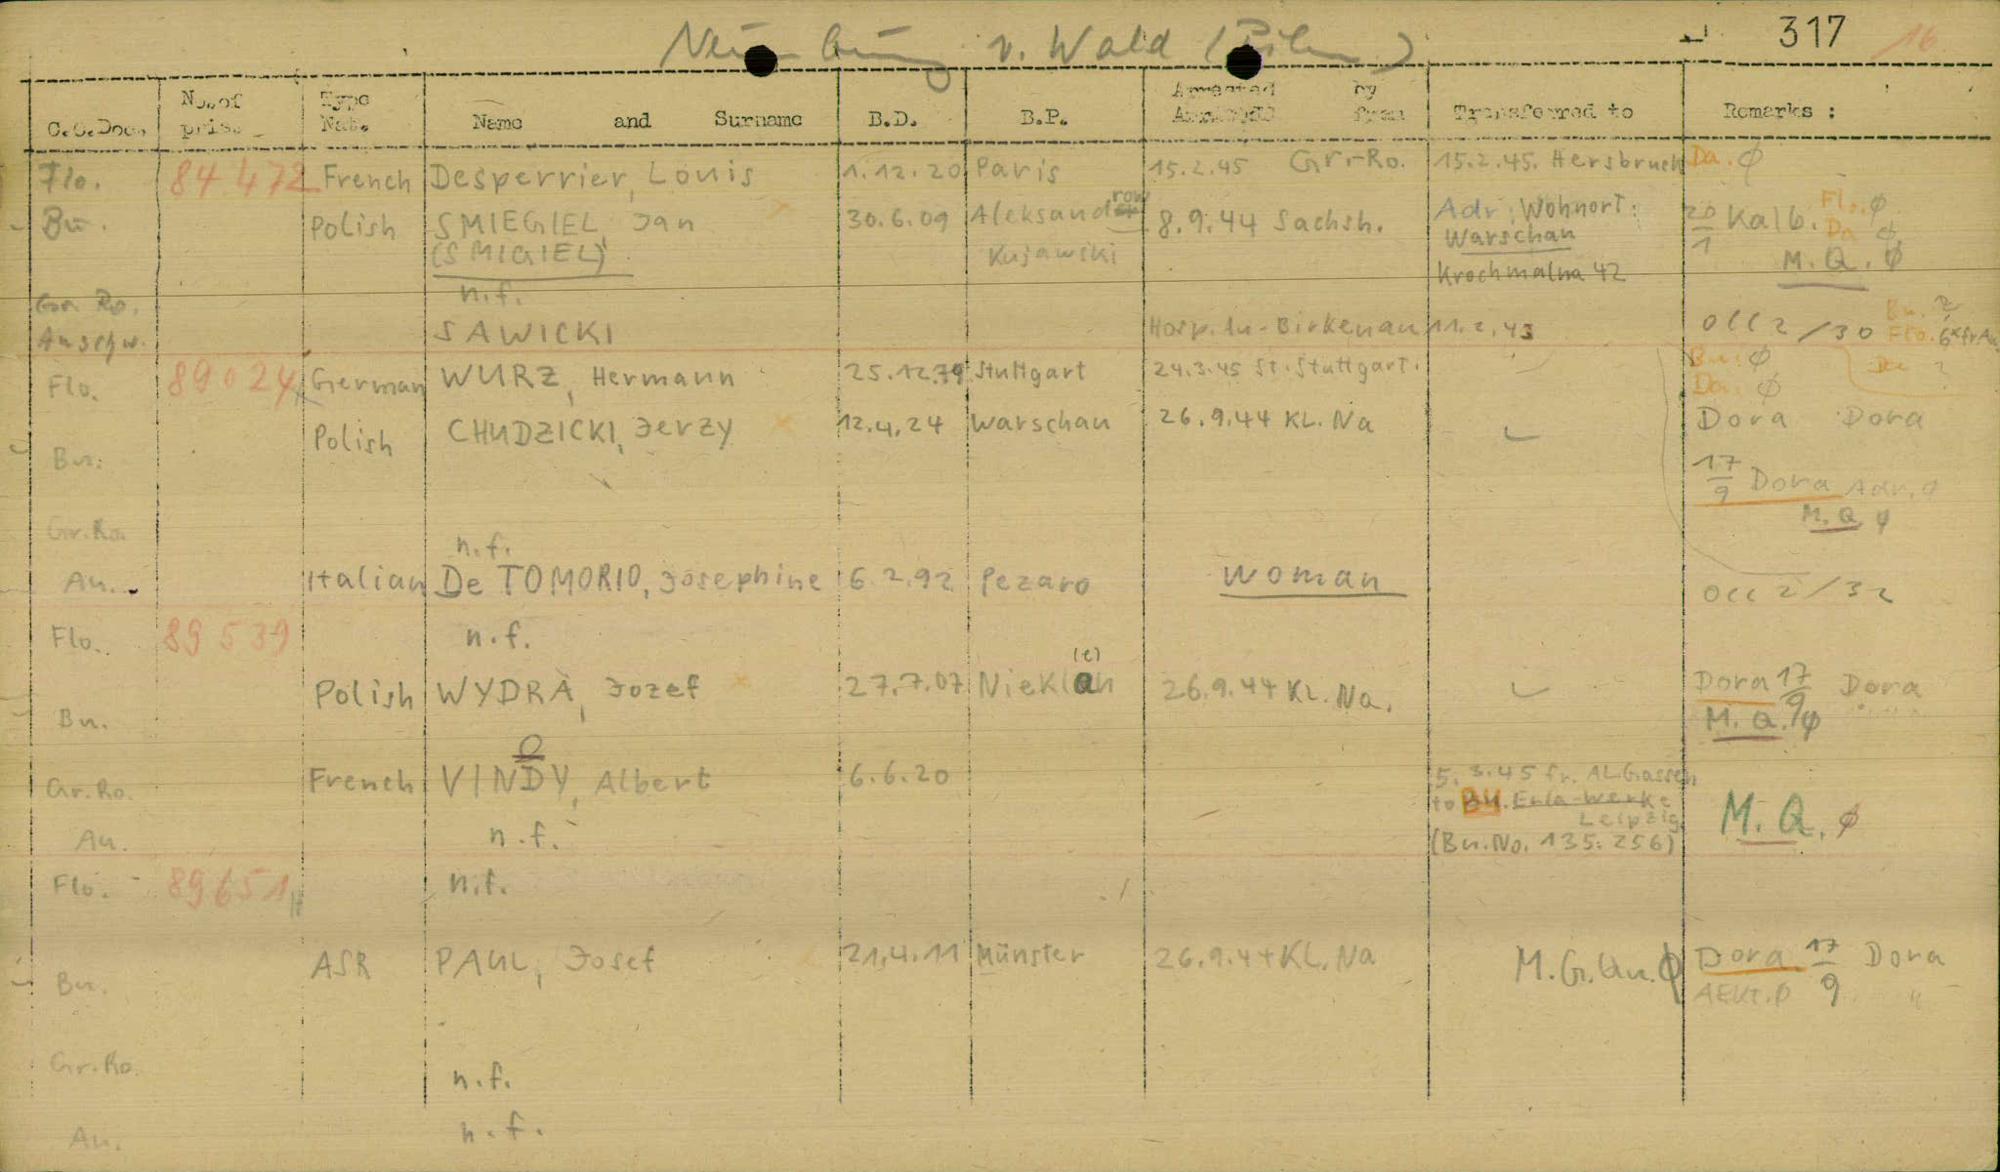 v. Wald 317 16
C.C.Doc. Nos. of pris. Type Nat. Name and Surname B.D. B.P. Arrested by from Transferred to Remarks :
Flo. 84 472 French Desperrier, Louis 1.12.20 Paris 15.2.45 Gr.-Ro. 15.2.45. Hersbruck Da. ϕ
Bu. Polish SMIEGIEL, Jan 30.6.09 Aleksandrow 8.9.44 Sachsh. Adr: Wohnort: 20/1 Kalb. Flo. ϕ
(SMIGIEL) Kujawski Warschau Da ϕ
Krochmalna 42 M.Q. ϕ
Gr. Ro. n.f.
Auschw. SAWICKI Hosp. Au-Birkenau 11.2.43 OCC 2/30 Bu. ? Flo. 6x fr Au.
Flo. 89024 German WURZ, Hermann 25.12.79 Stuttgart 24.3.45 St. Stuttgart. Bu: ϕ
Da. ϕ Da ?
Bu. Polish CHUDZICKI, Jerzy 12.4.24 Warschau 26.9.44 KL. Na Dora Dora
17/9 Dora Adr. ϕ
M.Q. ϕ
Gr.Ro. n.f.
Au. Italian De TOMORIO, Josephine 6.2.92 Pezaro woman OCC 2/32
Flo. 89539 n.f.
(e)
Bu. Polish WYDRA, Jozef 27.7.07 Nieklan 26.9.44 KL. Na. Dora 17/9 Dora
M.Q. ϕ
Gr.Ro. French VINDY, Albert 6.6.20 5.3.45 fr. AL. Gassen
to Bu. Erla-Werke
Leipzig M.Q. ϕ
Au. n.f. (Bu. No. 135.256)
Flo. 89651 n.f.
Bu. ASR PAUL, Josef 21.4.11 Münster 26.9.44 KL. Na M.G.Un. ϕ Dora 17/9 Dora
Gr.Ro. n.f.
Au. n.f.